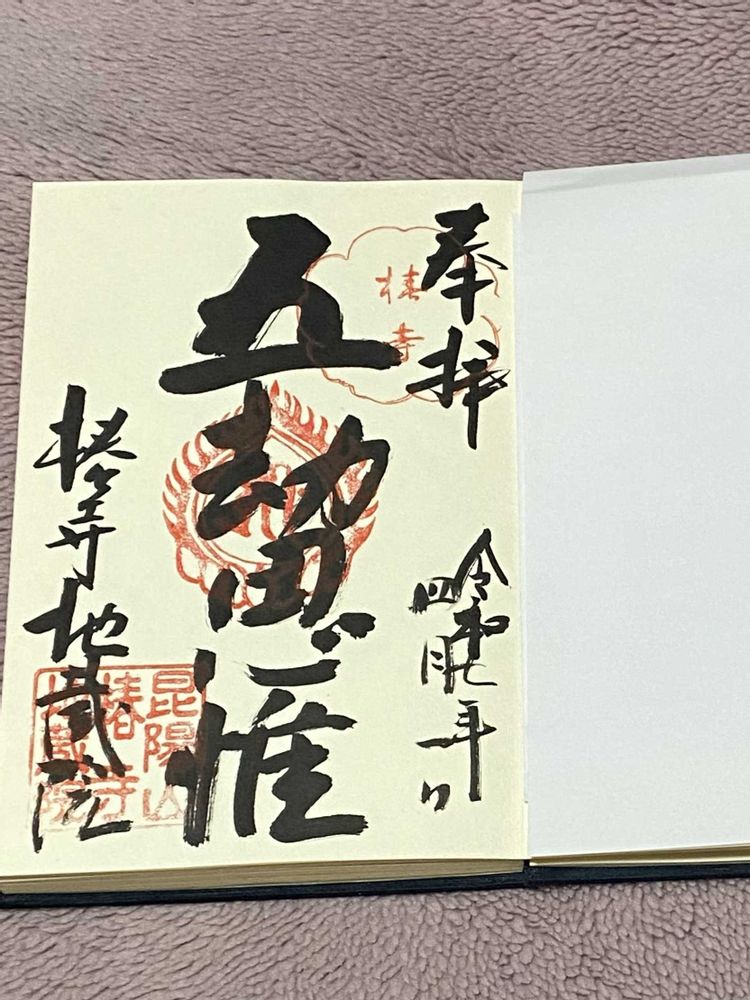 奉拝
令和七年
四月一日
椿
寺
五劫思惟
椿寺地蔵院
昆陽山
椿寺
地蔵院